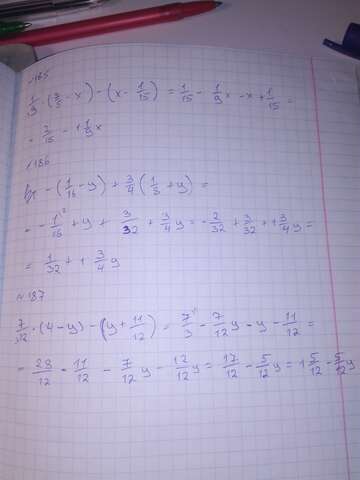 √185
1/9 · (3/5 - x) - (x - 1/15) = 1/15 - 1/9x - x + 1/15 =
= 2/15 - 1 1/9x
√186
- (1/16 - y) + 3/4(1/8 + y) =
= - 1/16 + y + 3/32 + 3/4y = - 2/32 + 3/32 + 1 3/4y =
= 1/32 + 1 3/4y
№187
7/12 · (4 - y) - (y + 11/12) = 7/3 - 7/12y - y - 11/12 =
= 28/12 - 11/12 - 7/12y - 12/12y = 17/12 - 5/12y = 1 5/12 - 5/12y